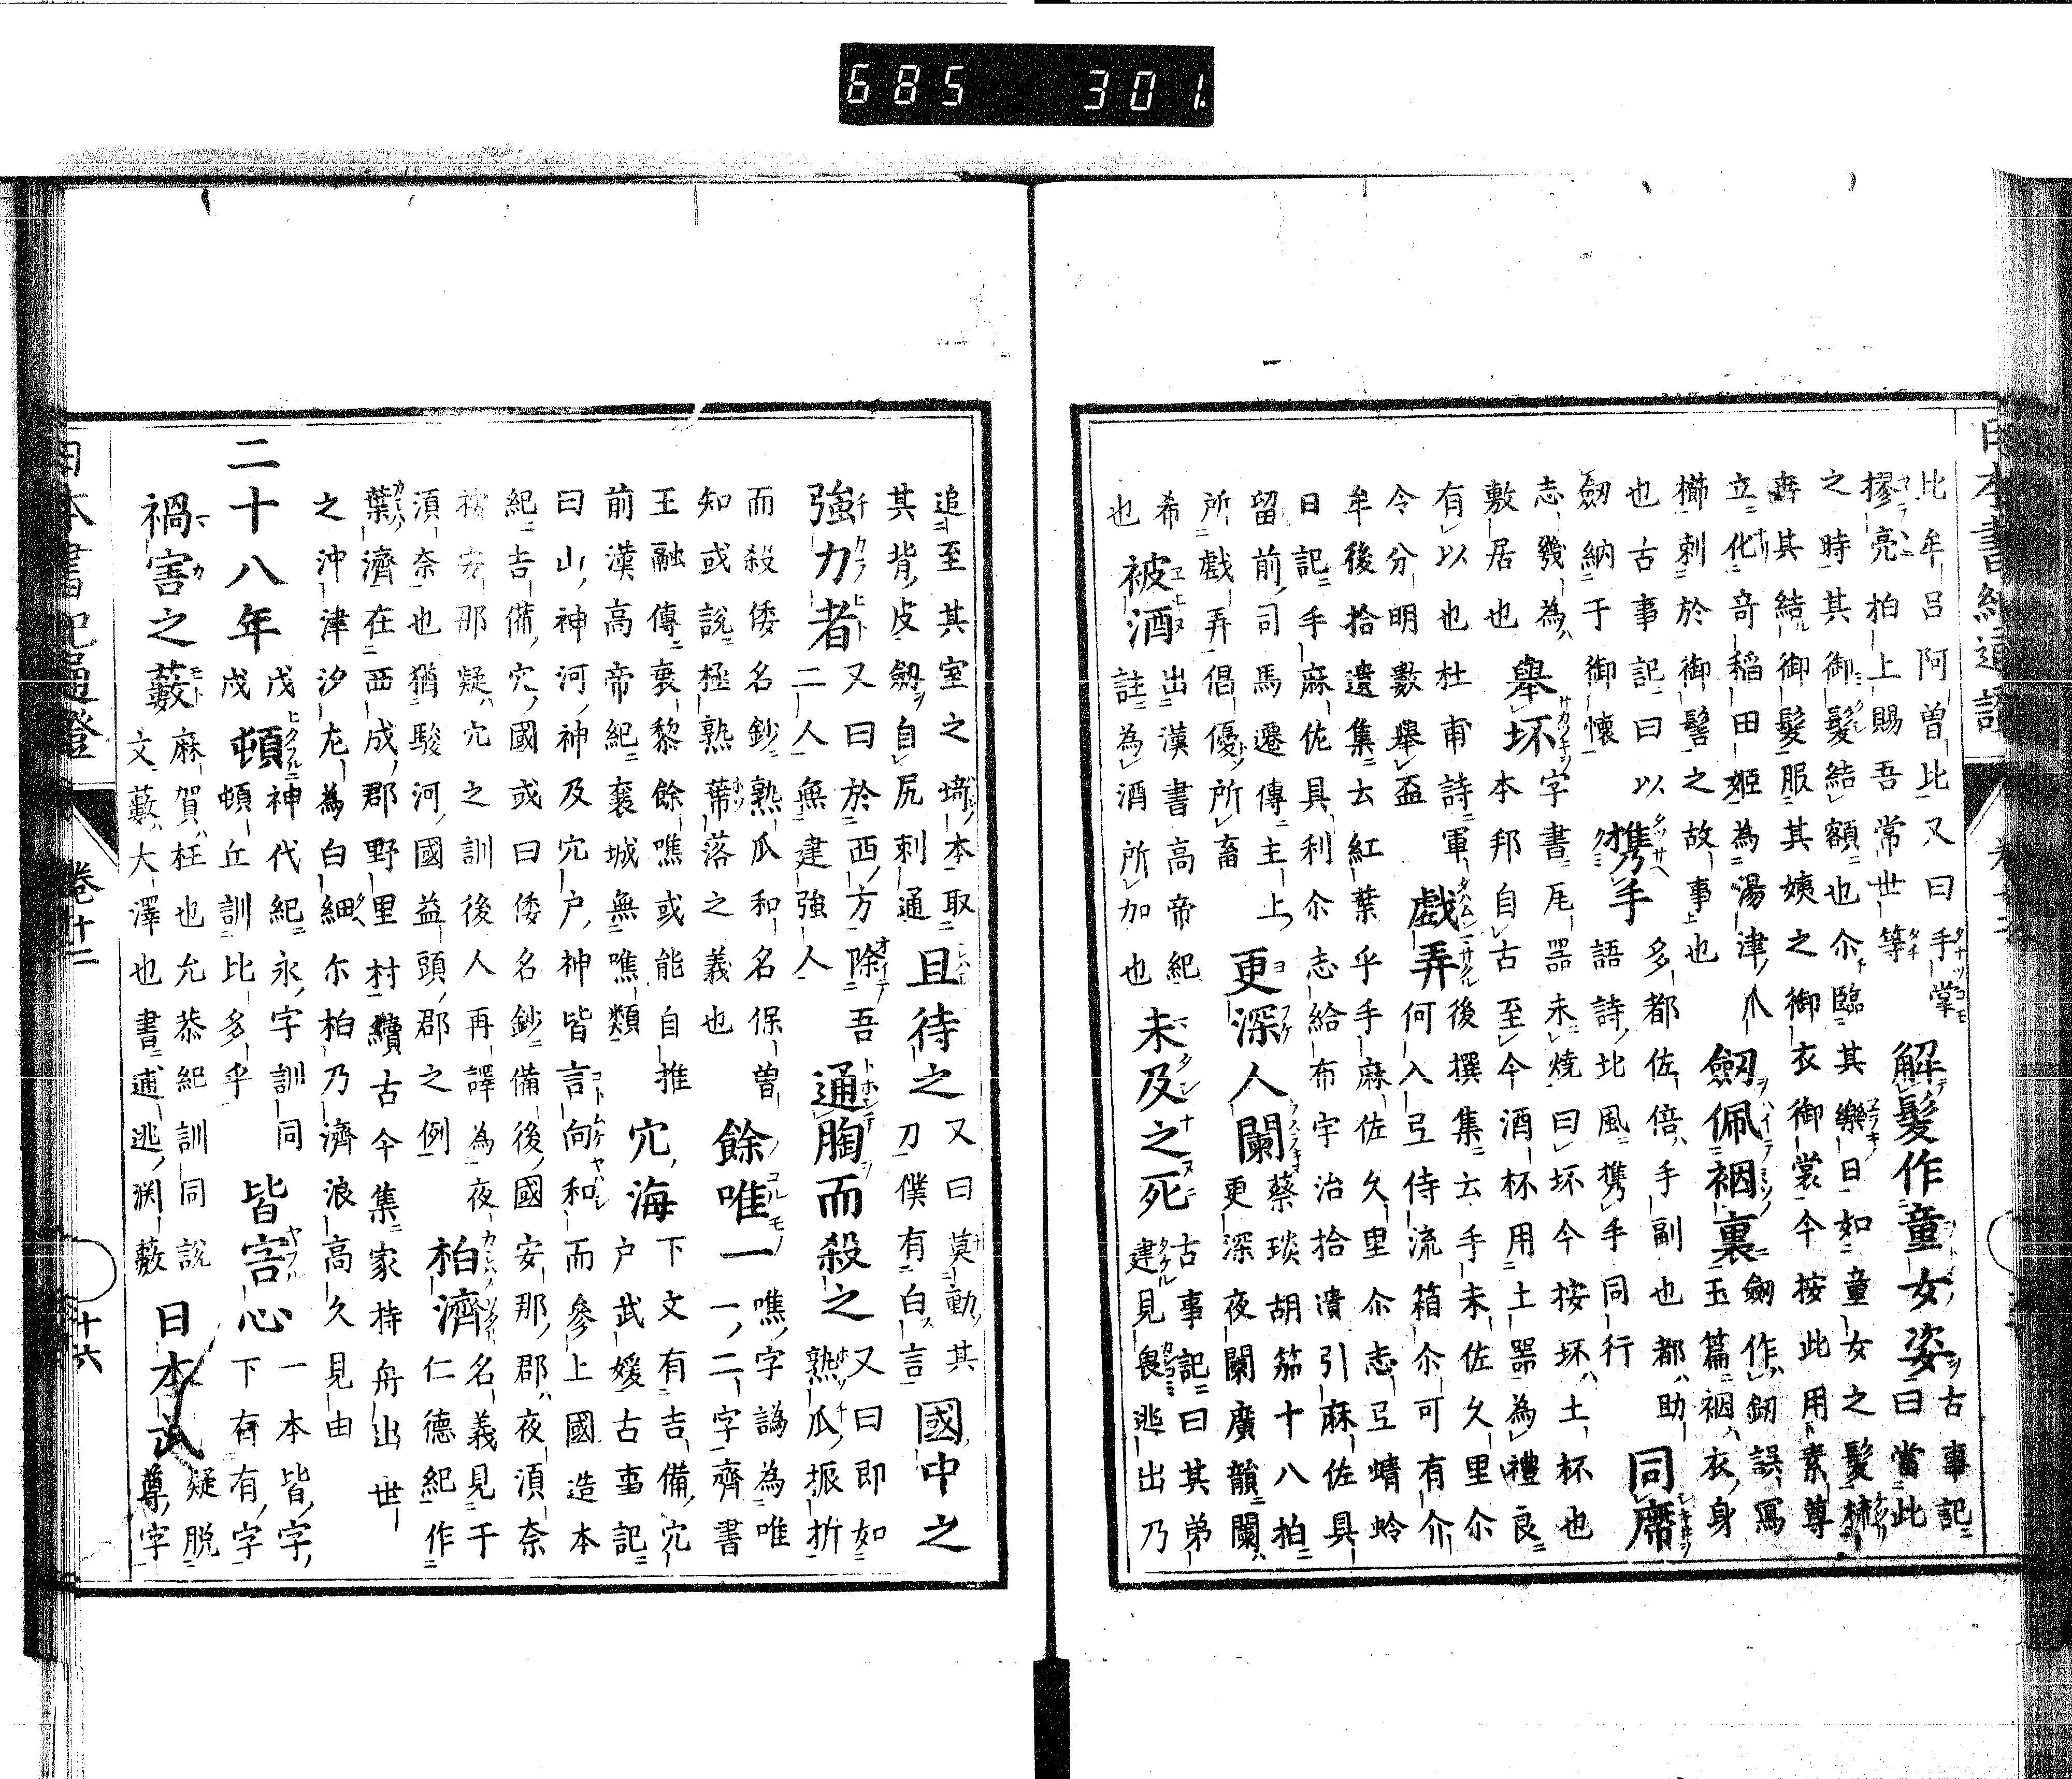 685 301
比牟呂阿曽比又曰手掌
樛亮柏上賜吾常世等
解髮作童女姿
古事記
曰當此
之時其御髮結額也尒臨其樂日如童女之髮梳
其結御髮服其姨之御衣御裳今按此用素尊
立化奇稻田姬為湯津爪
櫛刺於御髻之故事也
劔佩裀裏
劔作釼誤寫
玉篇裀衣身
也古事記曰以
劔納于御懷
携手
多都佐倍手副也都助
語詩北風携手同行
同席
志幾為
敷居也
舉坏
字書瓦器未燒曰坏今按坏土杯也
本邦自古至今酒杯用土器為禮良
有以也杜甫詩軍
令分明數舉盃
戲弄
後撰集云手末佐久里尒
何入弖侍流箱尒可有介
牟後拾遺集云紅葉乎手麻佐久里尒志弖蜻蛉
日記手麻佐具利尒志給布宇治拾遺引麻佐具
留前司馬遷傳主上
所戲弄倡優所畜
更深人闌
蔡琰胡笳十八拍
更深夜闌廣韻闌
希
也
被酒
出漢書高帝紀
註為酒所加也
未及之死
古事記曰其弟
建見畏逃出乃
追至其室之本取
其背皮劔自尻刺通
且待之
又曰莫動其
刀僕有白言
國中之
強力者
又曰於西方除吾
二人無建強人
通胸而殺之
又曰即如
熟瓜振折
而殺倭名鈔熟瓜和名保曽
知或說極熟蔕落之義也
餘唯一
噍字譌為唯
一二字齊書
王融傳衰黎餘噍或能自推
前漢高帝紀襄城無噍類
穴海
下文有吉備穴
戶武媛古事記
曰山神河神及穴戶神皆言向和而參上國造本
紀吉備穴國或曰倭名鈔備後國安那郡夜須奈
那疑穴之訓後人再譯為夜
須奈也猶駿河國益頭郡之例
柏濟
名義見于
仁德紀作
葉濟在西成郡野里村續古今集家持舟出世
之沖津汐為白細尓柏乃濟浪高久見由
二十八年
戊
戌
頓
神代紀永字訓同
頓丘訓比多乎
皆害心
一本皆字
下有有字
禍害之藪
麻賀枉也允恭紀訓同說
文藪大澤也書逋逃渕藪
日本武
疑脫
尊字
日本書紀通證
卷十二
十六